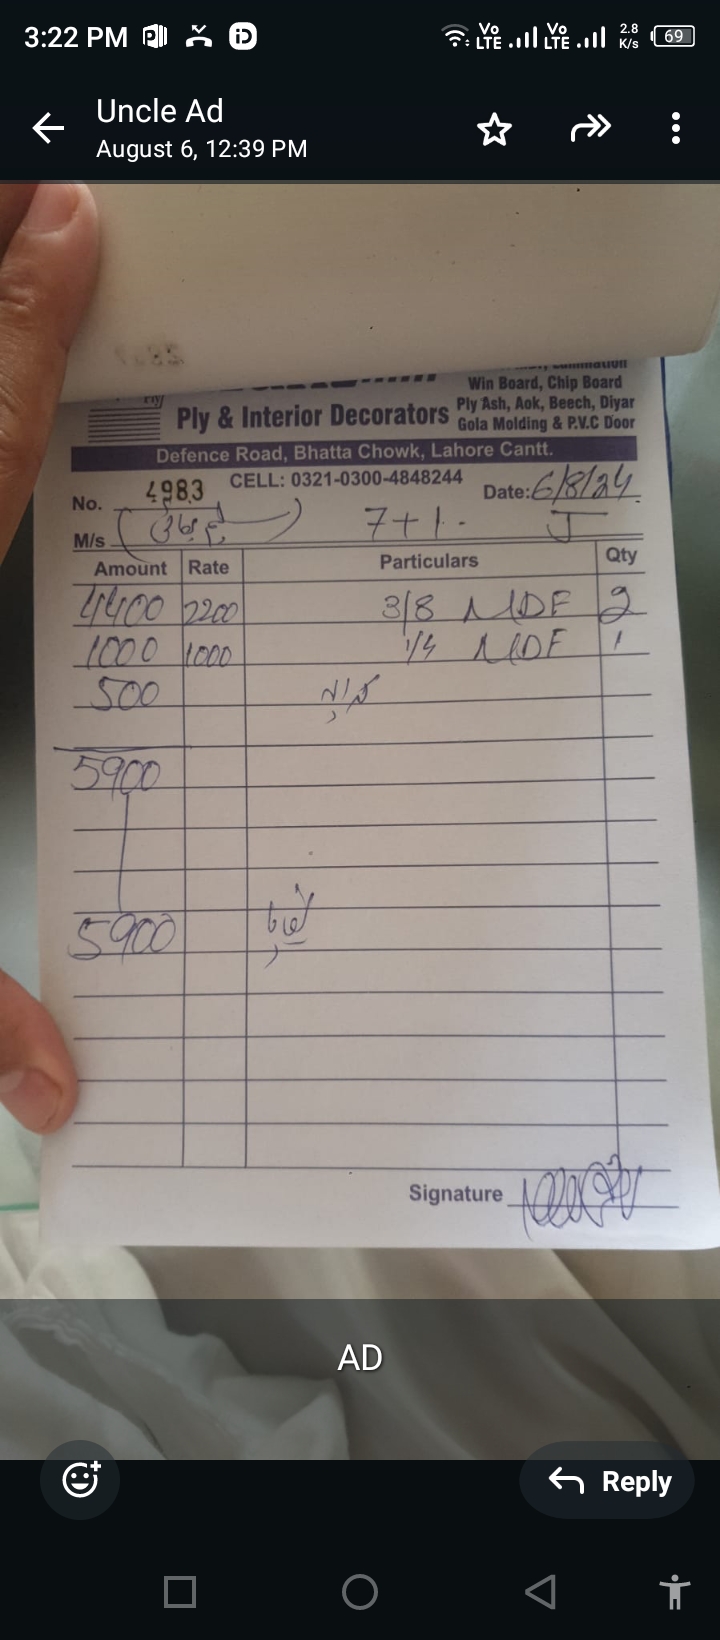 3:22 PM
Vo LTE Vo LTE 2.8 K/s 69
Uncle Ad
August 6, 12:39 PM
Win Board, Chip Board
Ply & Interior Decorators
Ply Ash, Aok, Beech, Diyar
Gola Molding & P.V.C Door
Defence Road, Bhatta Chowk, Lahore Cantt.
No. 4983 CELL: 0321-0300-4848244 Date: 6/8/24
M/s 7+1-
Amount Rate Particulars Qty
4400 2200 3/8 MDF 2
1000 1000 1/4 MDF 1
500
5900
5900
Signature
AD
Reply